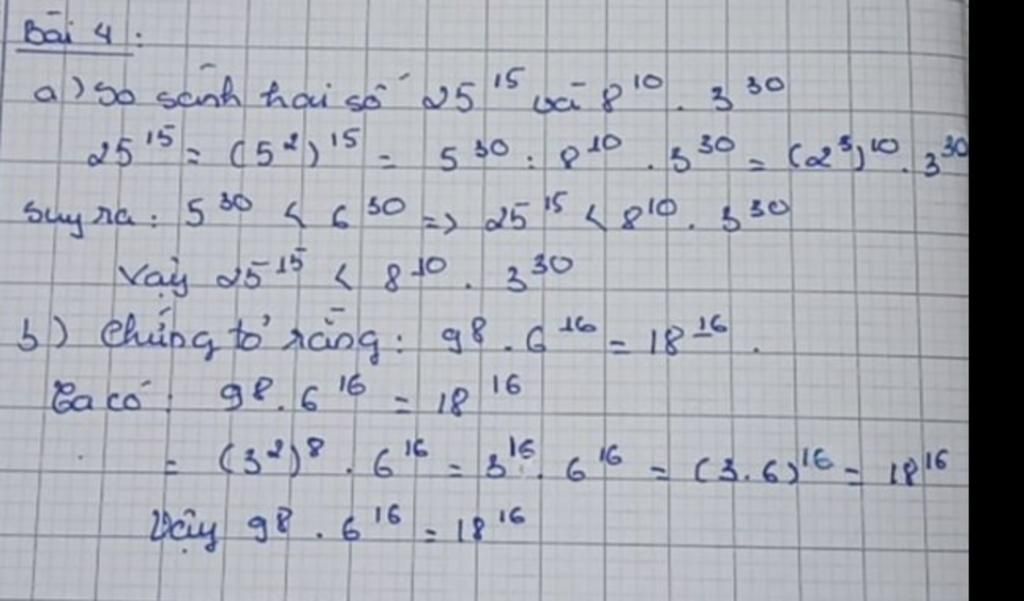 Bài 4 :
a) So sánh hai số 25¹⁵ và 8¹⁰ . 3³⁰
25¹⁵ = (5²)¹⁵ = 5³⁰ : 8¹⁰ . 3³⁰ = (2³)¹⁰ . 3³⁰
Suy ra : 5³⁰ < 6³⁰ => 25¹⁵ < 8¹⁰ . 3³⁰
Vậy 25¹⁵ < 8¹⁰ . 3³⁰
b) Chứng tỏ rằng : 9⁸ . 6¹⁶ = 18¹⁶ .
Ta có : 9⁸ . 6¹⁶ = 18¹⁶
= (3²)⁸ . 6¹⁶ = 3¹⁶ . 6¹⁶ = (3.6)¹⁶ = 18¹⁶
Vậy 9⁸ . 6¹⁶ = 18¹⁶